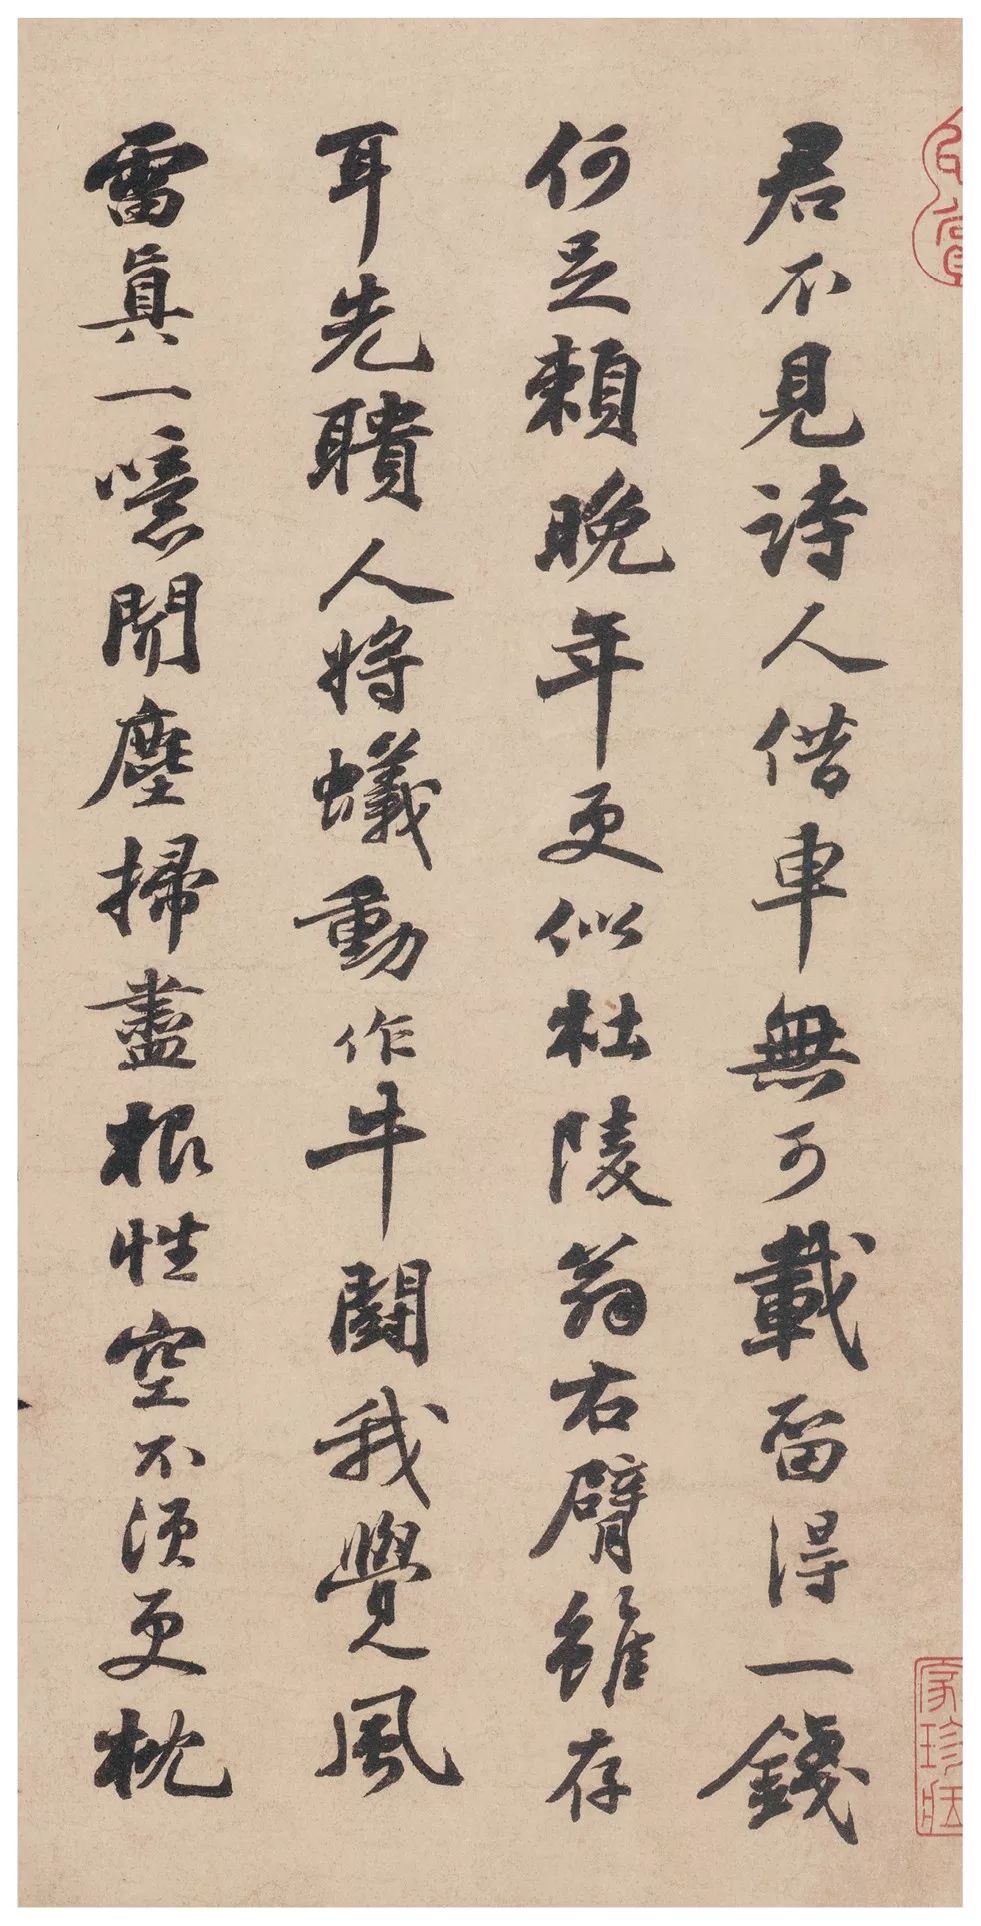 君不見詩人借車無可載留得一錢
何足賴晚年更似杜陵翁右臂雖存
耳先聵人將蟻動作牛鬬我覺風
雷真一噫聞塵掃盡根性空不須更枕